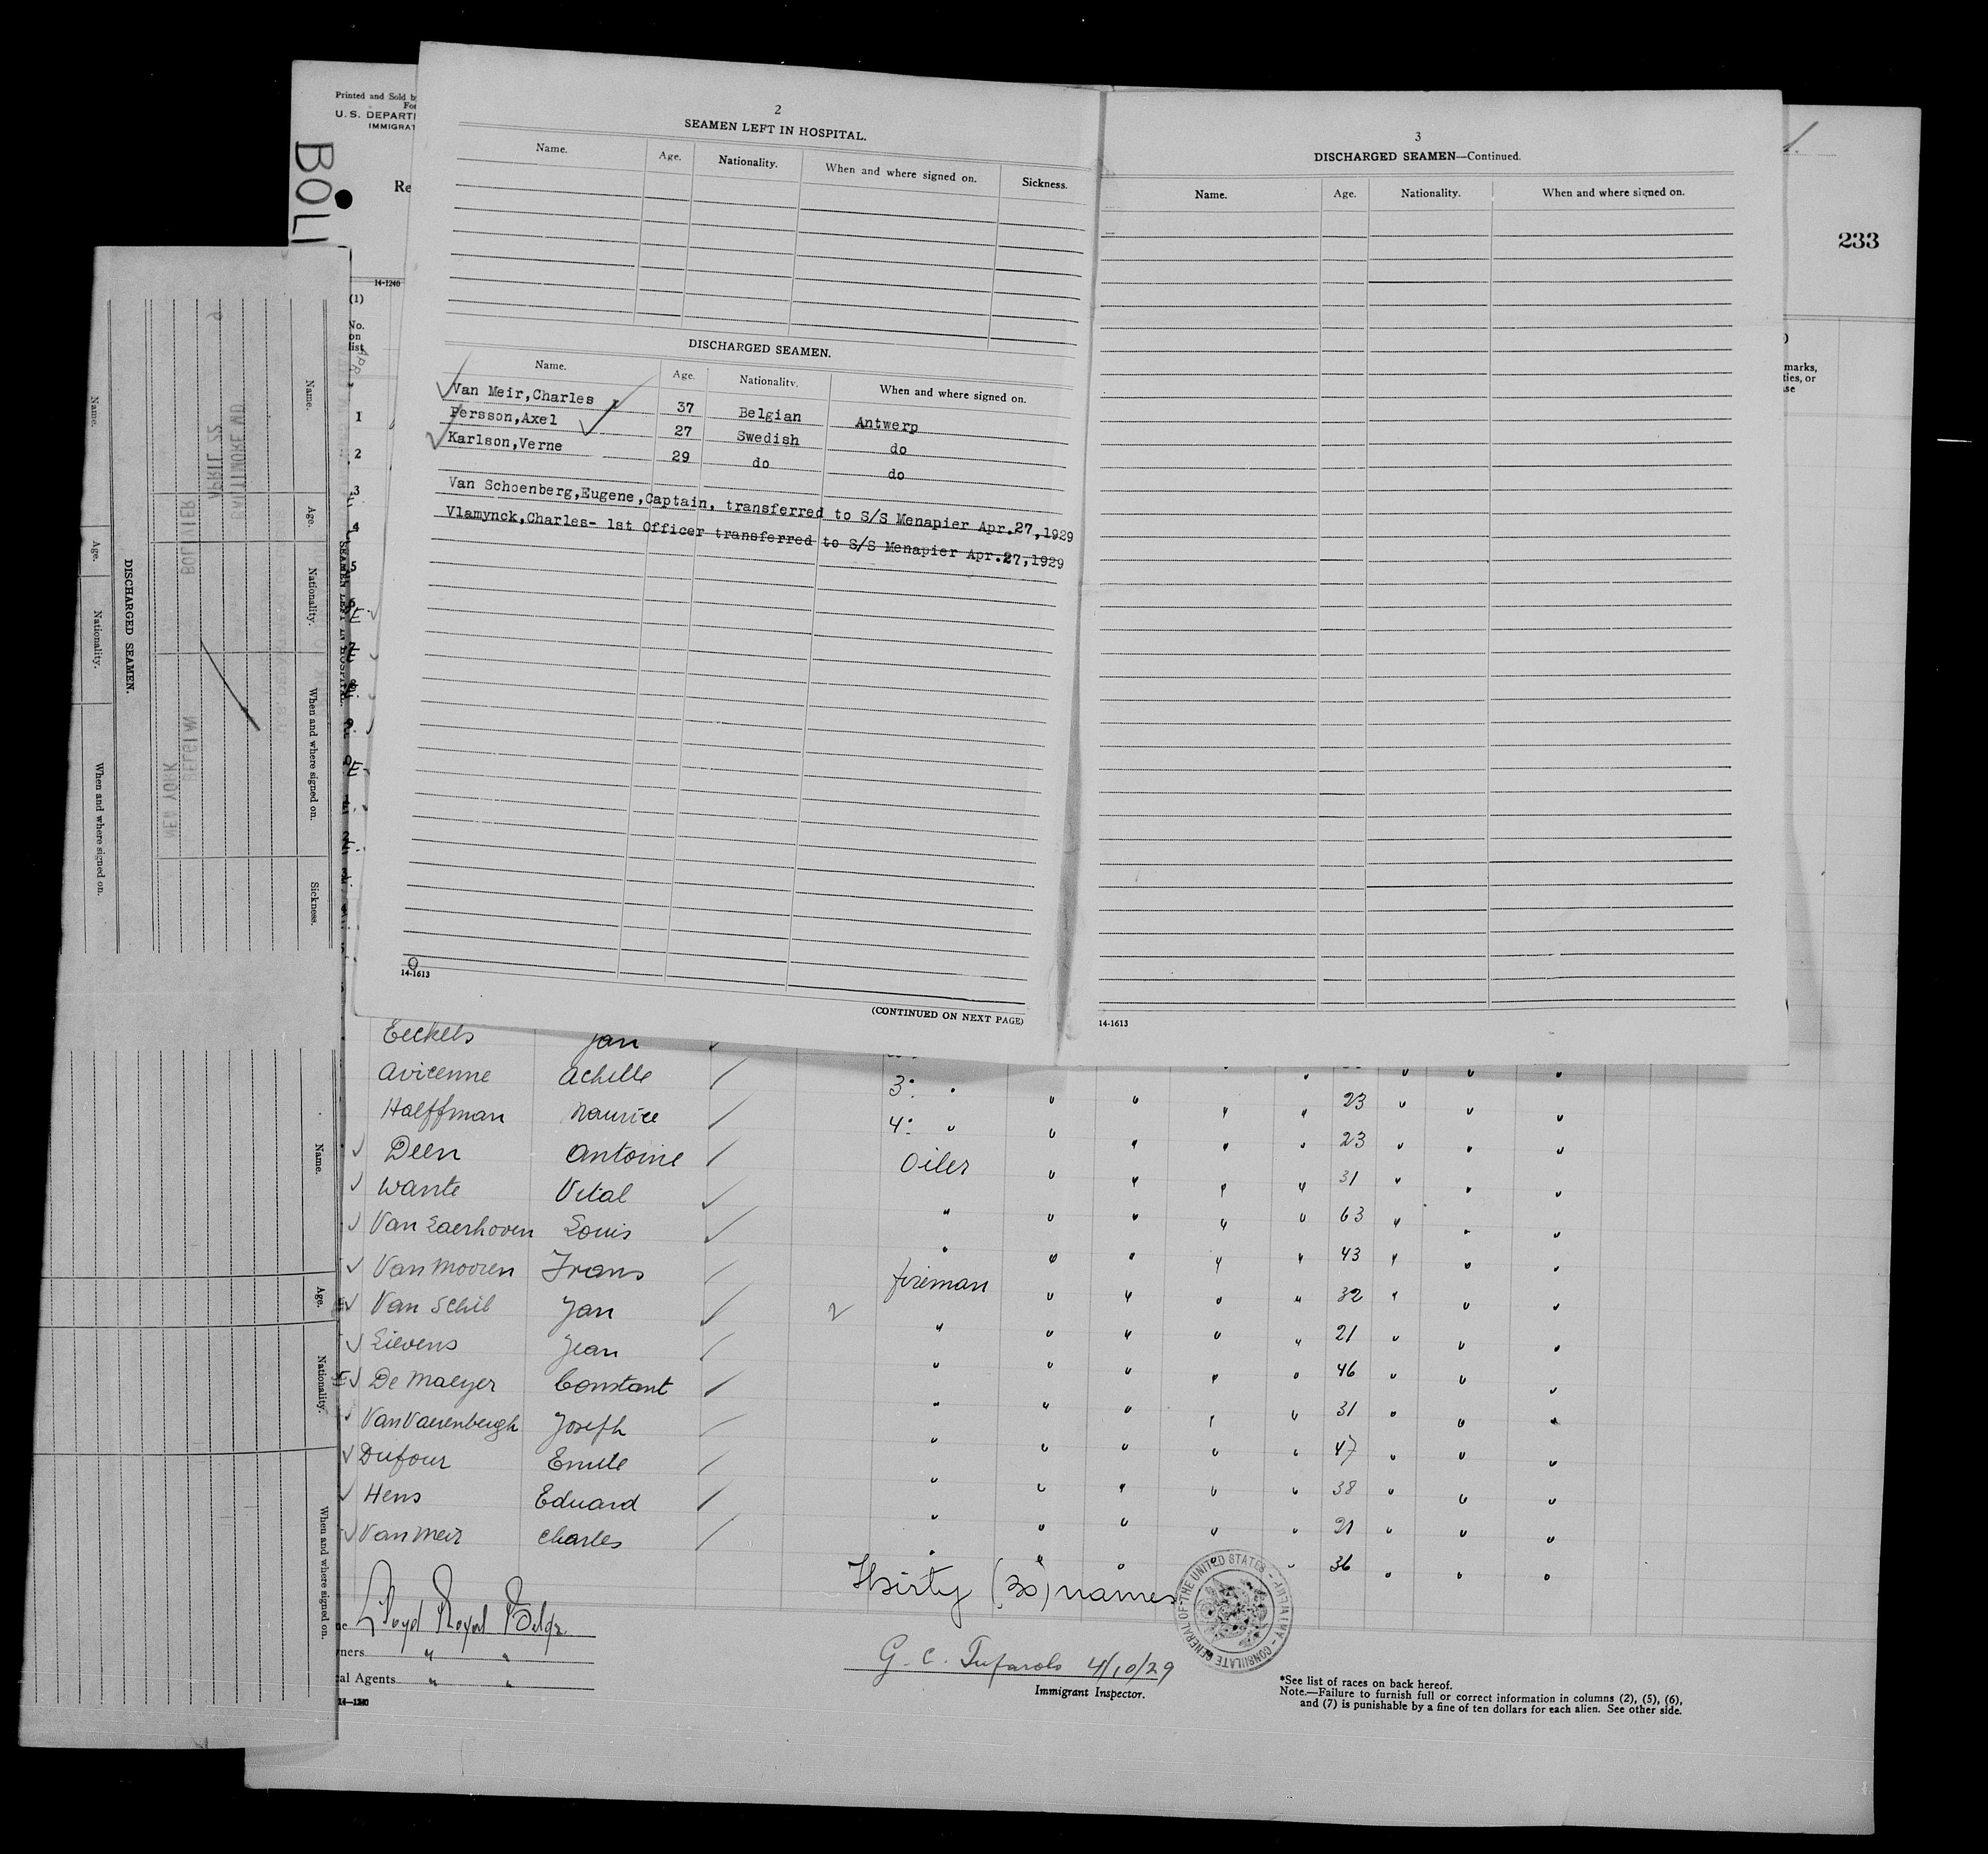 Printed and Sold b
For
U. S. DEPARTM
IMMIGRAT
BOLI
Re
14-1240
(1)
No.
on
list
1
2
3
4
5
233
marks,
ties, or
se
2
SEAMEN LEFT IN HOSPITAL.
Name. Age. Nationality. When and where signed on. Sickness.
DISCHARGED SEAMEN.
Name. Age. Nationality. When and where signed on.
Van Meir,Charles 37 Belgian Antwerp
Persson,Axel 27 Swedish do
Karlson,Verne 29 do do
Van Schoenberg,Eugene,Captain, transferred to S/S Menapier Apr.27,1929
Vlamynck,Charles- 1st Officer transferred to S/S Menapier Apr.27,1929
14-1613
(CONTINUED ON NEXT PAGE)
3
DISCHARGED SEAMEN—Continued.
Name. Age. Nationality. When and where signed on.
14-1613
SEAMEN LEFT IN HOSPITAL.
Name. Age. Nationality. When and where signed on. Sickness.
DISCHARGED SEAMEN.
Name. Age. Nationality. When and where signed on.
BALTIMORE MD
APRIL 22 9
BOLIVIER
BELGIAN
NEW YORK
Name. Age. Nationality. When and where signed on.
Eeckels Jan
Avicenne Achille 3° " " " " " 23 " " "
Halffman Maurice 4° " " " " " 23 " " "
Deen Antoine Oiler " " " " 31 " " "
Wante Vital " " " " " 63 " " "
Van Laerhoven Louis " " " " " 43 " " "
Van Mooren Frans fireman " " " " 32 " " "
Van Schil Jan 2 " " " " " 21 " " "
Lievens Jean " " " " " 46 " " "
De Maeyer Constant " " " " " 31 " " "
Joseph " " " " " 47 " " "
Dufour Emile " " " " " 38 " " "
Hens Eduard " " " " " 21 " " "
Van Meir Charles " " " " " 36 " " "
Thirty (30) names
CONSULATE GENERAL OF THE UNITED STATES - ANTWERP -
Lloyd Royal Belge
ners " "
al Agents " "
14—1240
G. C. Tufarolo 4/10/29
Immigrant Inspector.
*See list of races on back hereof.
Note.—Failure to furnish full or correct information in columns (2), (5), (6),
and (7) is punishable by a fine of ten dollars for each alien. See other side.